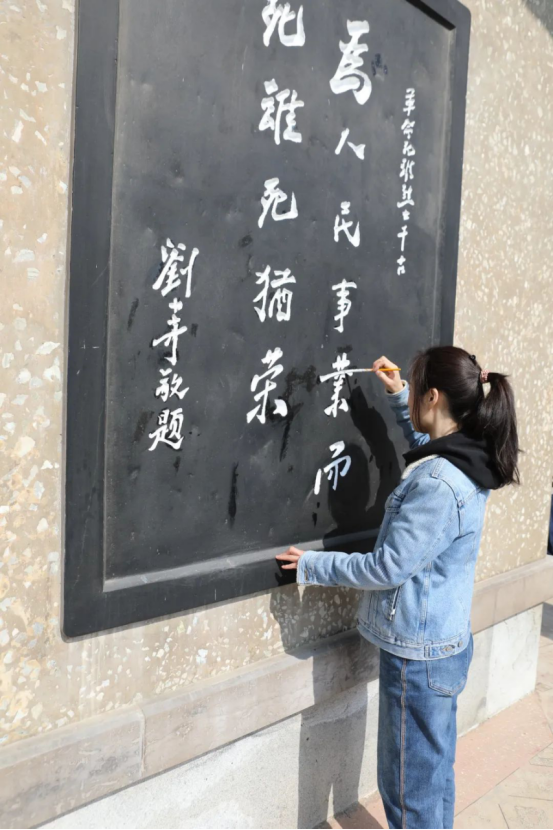 革命死難烈士千古
為人民事業而
死雖死猶榮
劉敬題